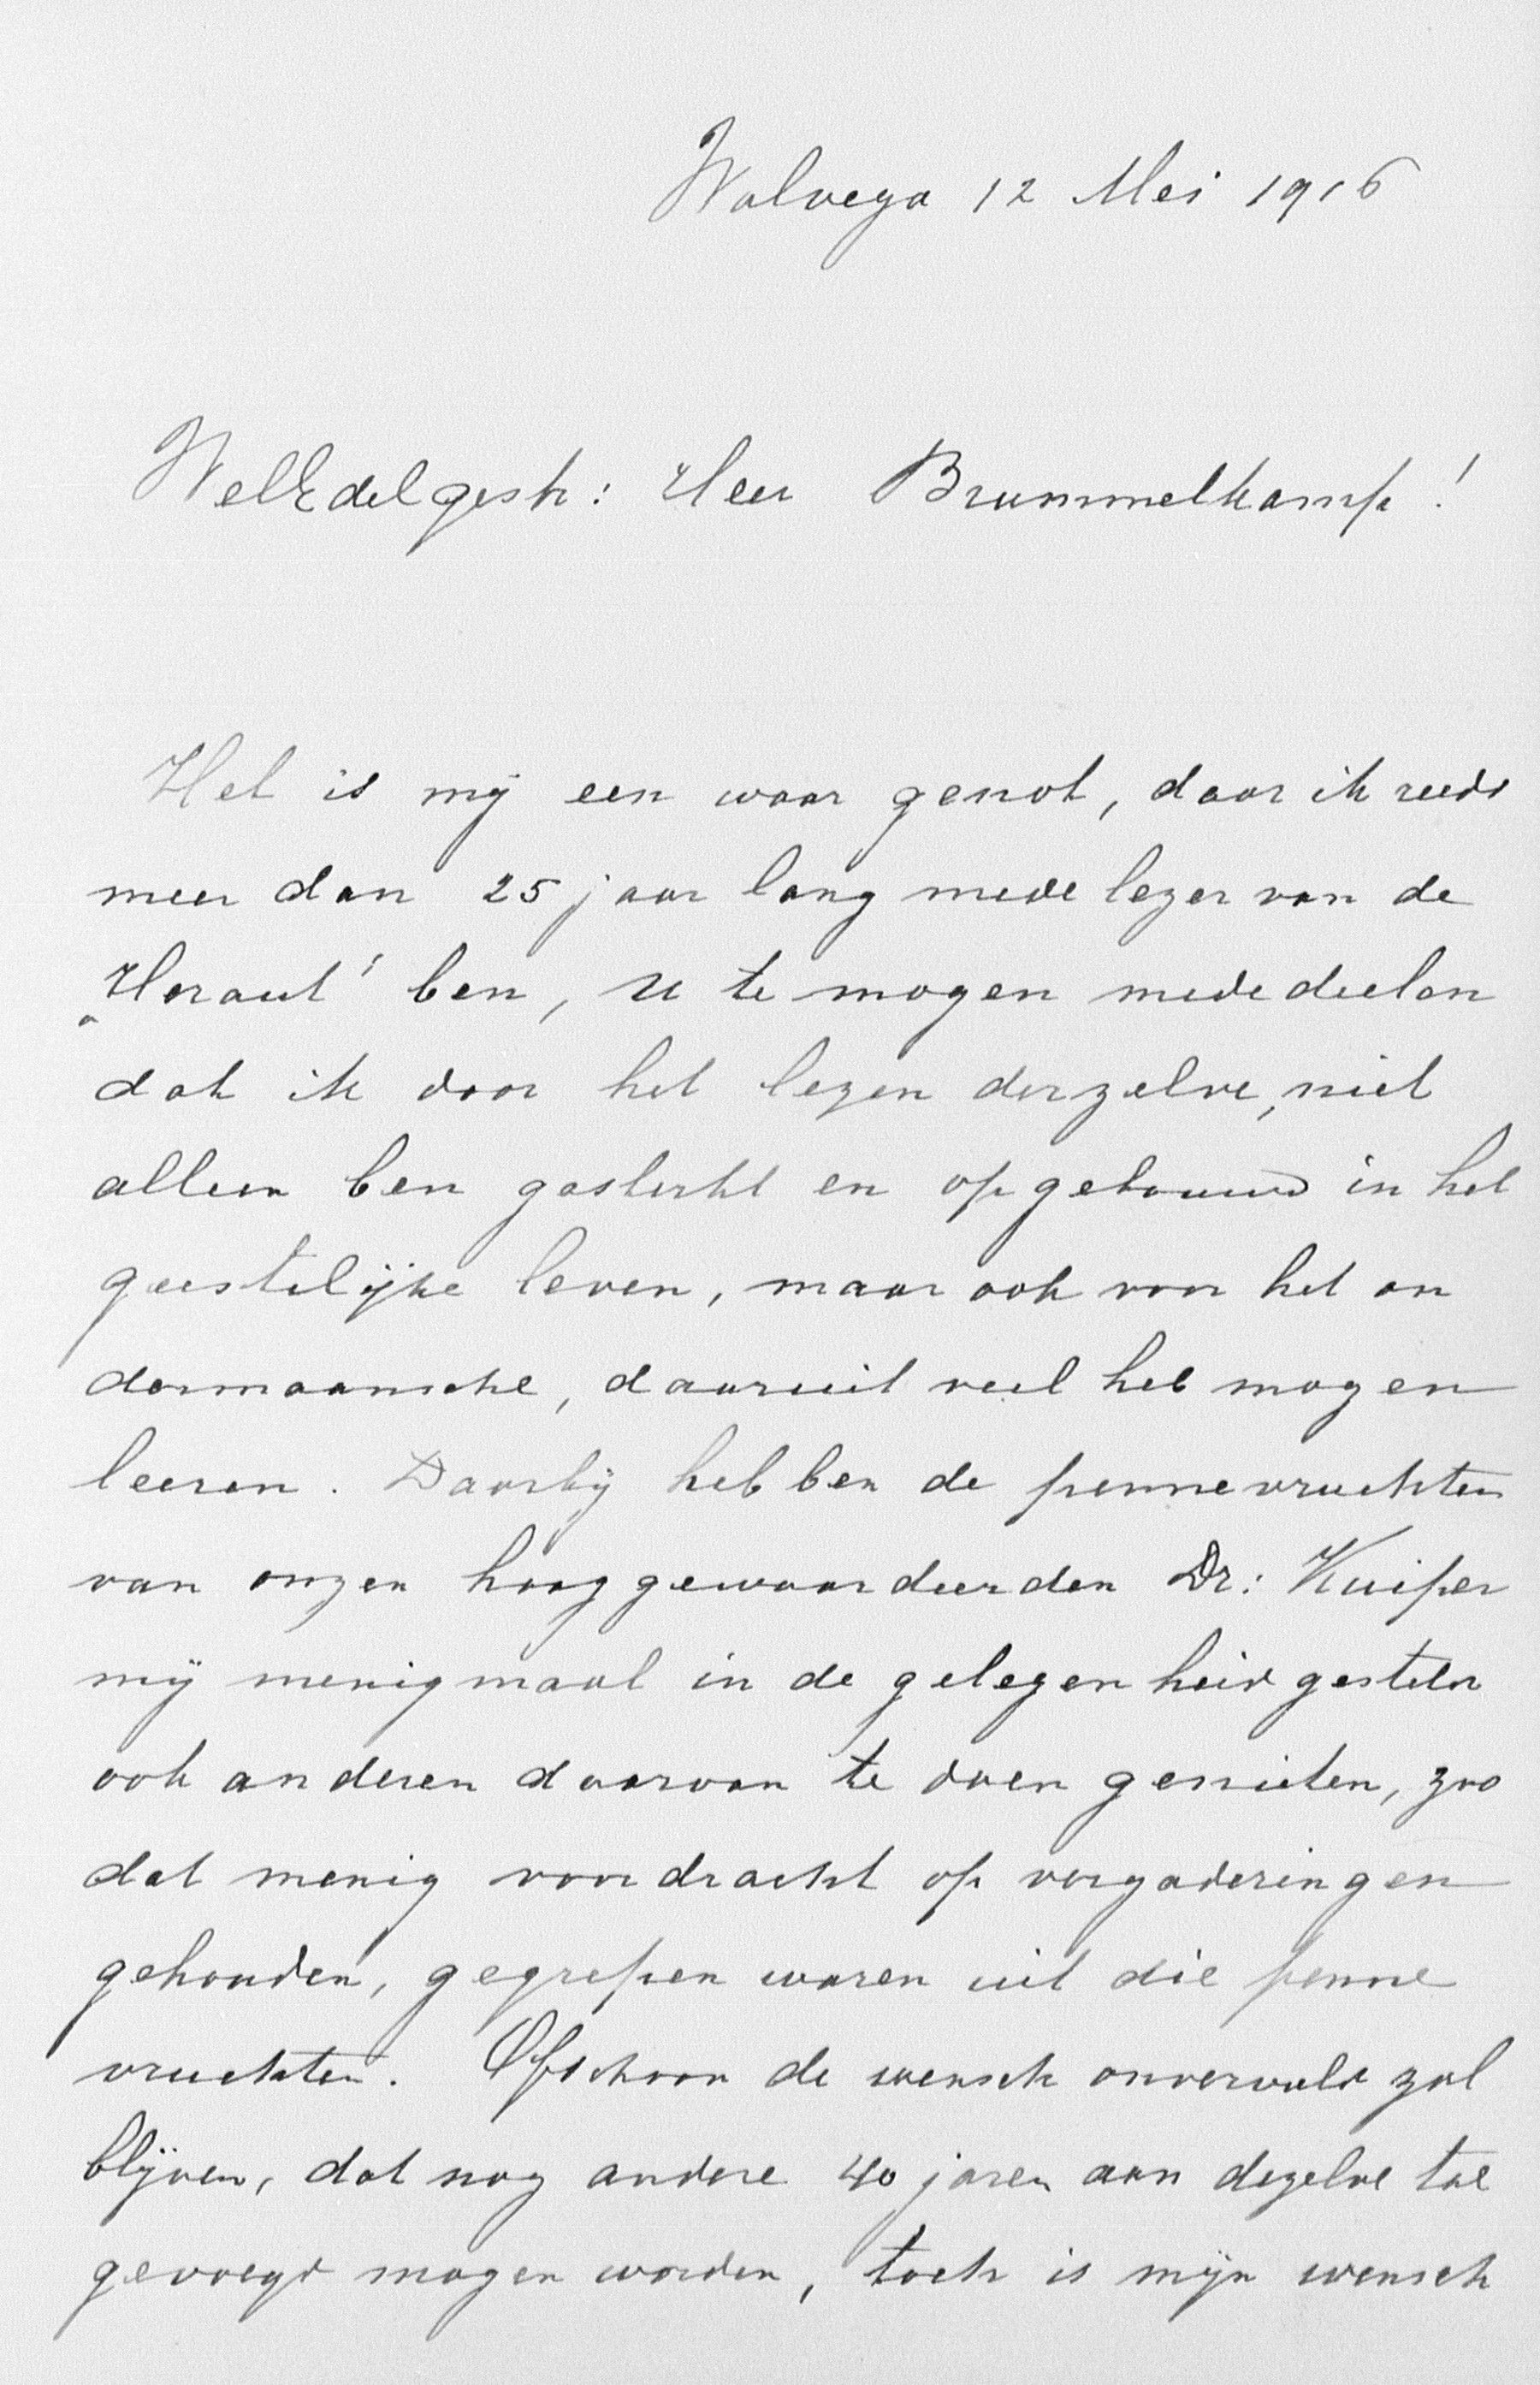 Wolvega 12 Mei 1916
WelEdelgestr: Heer Brummelkamp!
Het is mij een waar genot, daar ik reeds
meer dan 25 jaar lang mede lezer van de
„Heraut" ben, U te mogen mededeelen
dat ik door het lezen derzelve, niet
alleen ben gesterkt en opgebouwd in het
geestelijke leven, maar ook voor het on
dermaansche, daaruit veel heb mogen
leeren. Daarbij hebben de pennevruchten
van onzen hooggewaardeerden Dr: Kuiper
mij menigmaal in de gelegenheid gesteld
ook anderen daarvan te doen genieten, zoo
dat menig voordracht op vergaderingen
gehouden, gegrepen waren uit die penne
vruchten. Ofschoon de wensch onvervuld zal
blijven, dat nog andere 40 jaren aan dezelve toe
gevoegd mogen worden, toch is mijn wensch